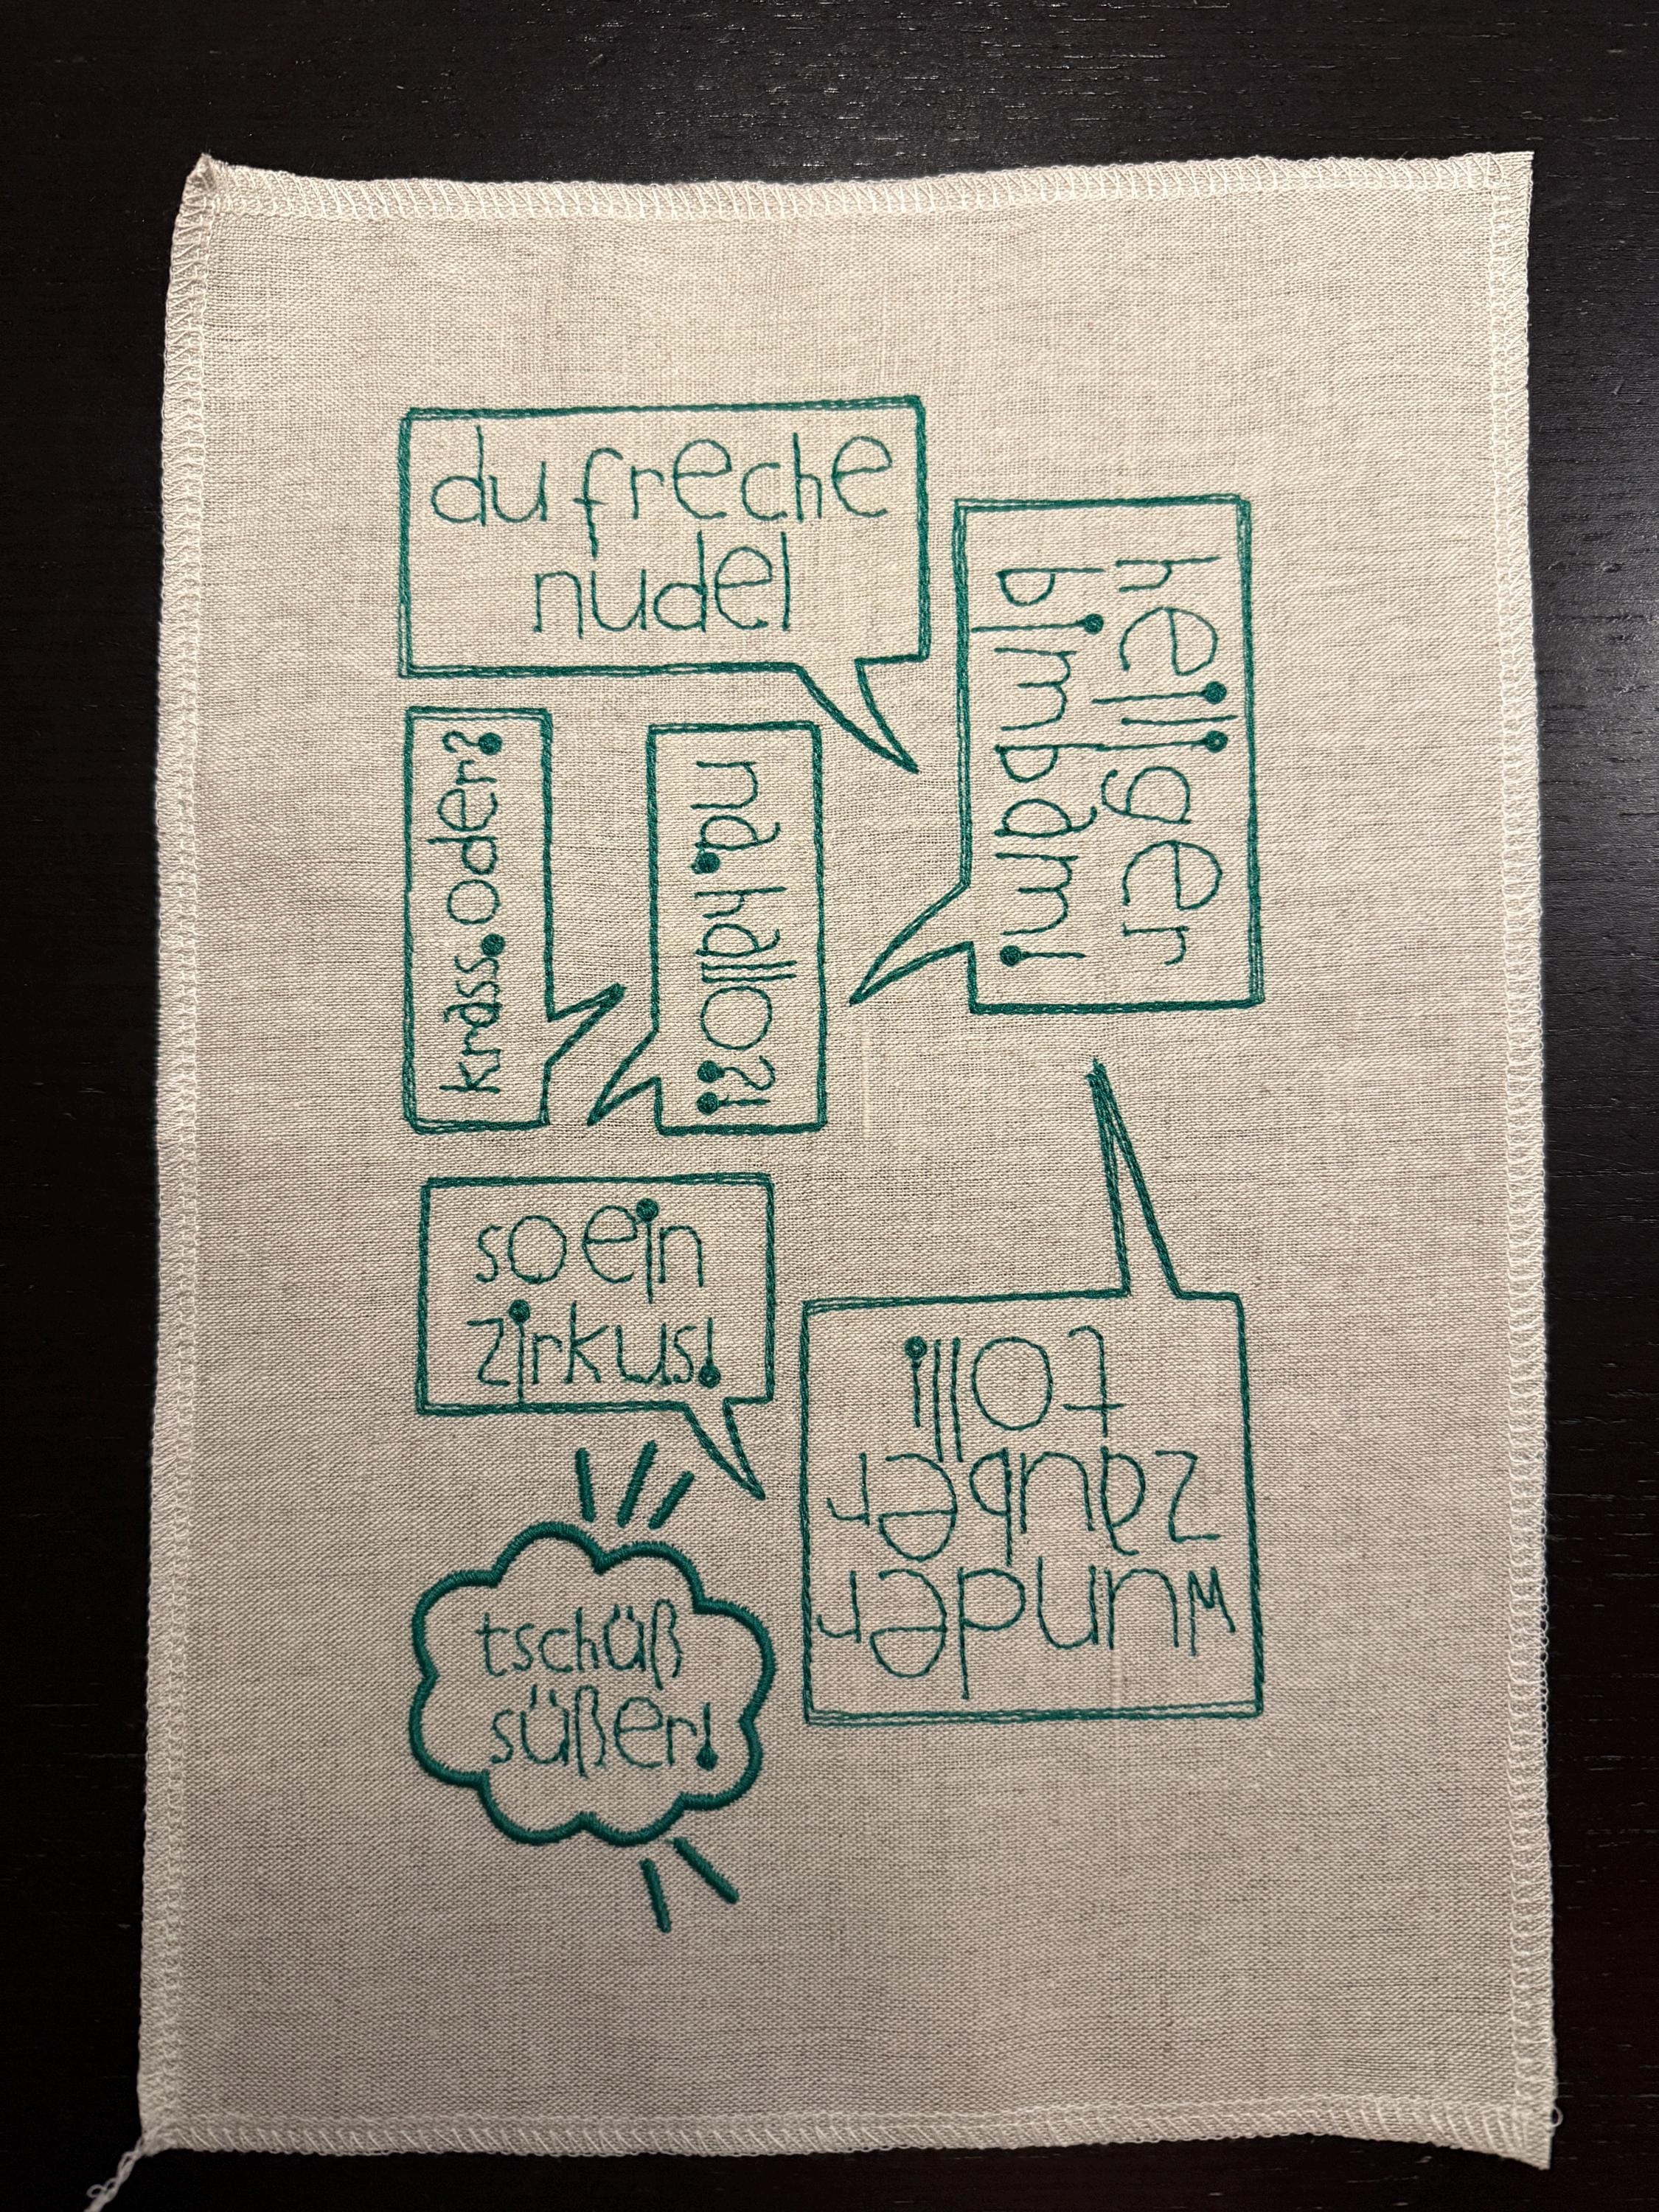 du freche
nudel
heiliger
bimbam!
krass.oder?
na.hallo?!
so ein
zirkus!
wunder
zauber
toll!
tschüß
süßer!